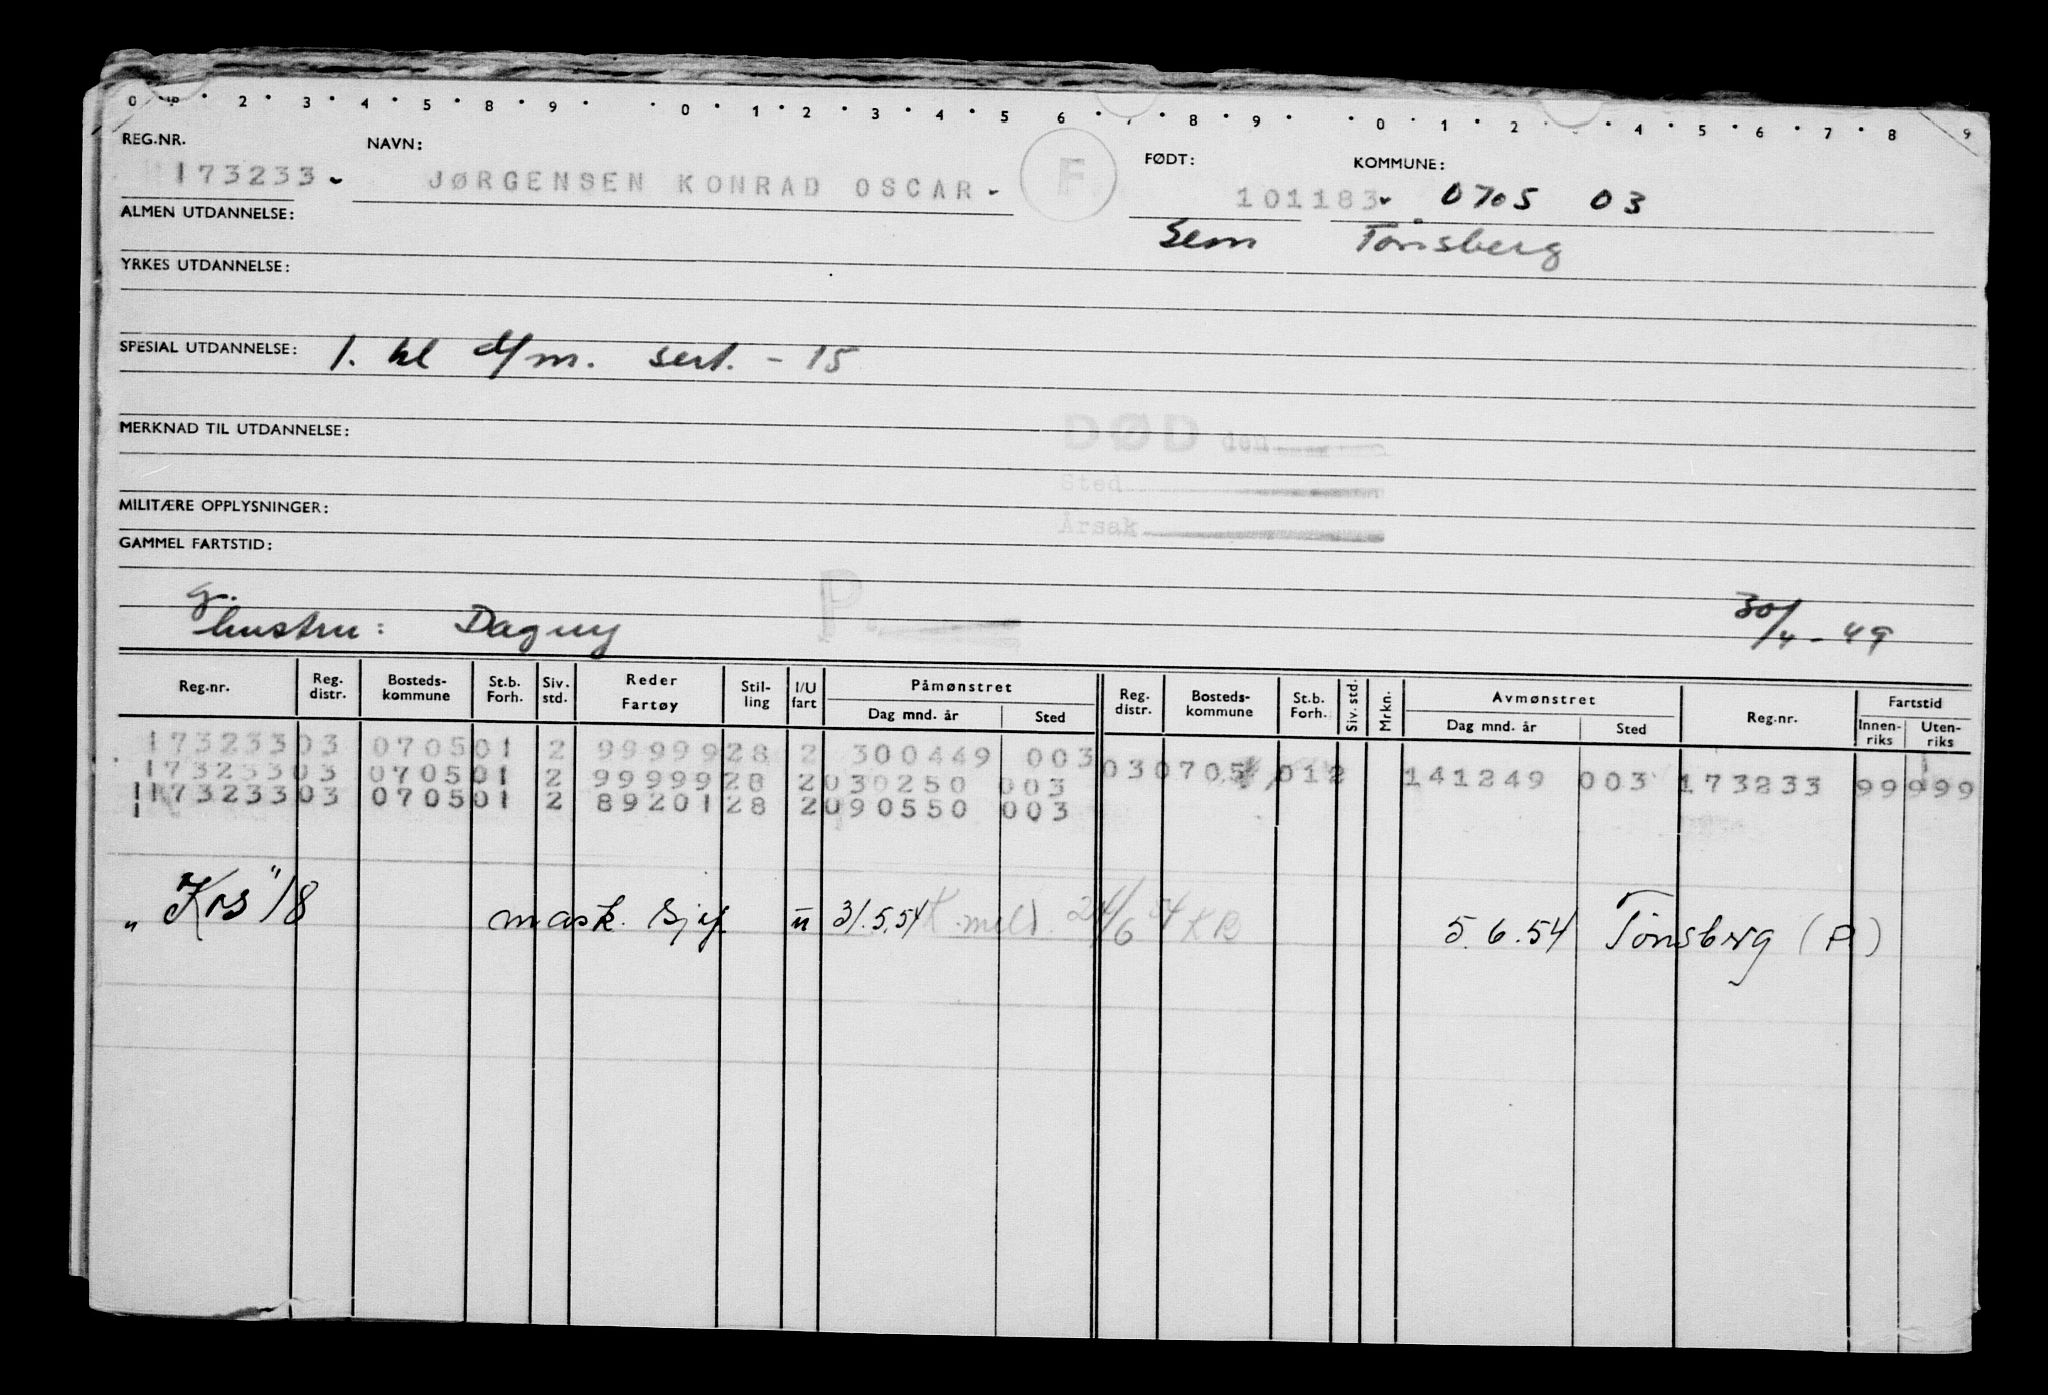 0 1 2 3 4 5 8 9 0 1 2 3 4 5 6 7 8 9 0 1 2 4 5 6 7 8 9
REG.NR. NAVN: FØDT: KOMMUNE:
173233 JØRGENSEN KONRAD OSCAR F 101183 0705 03
ALMEN UTDANNELSE: Sem Tønsberg
YRKES UTDANNELSE:
SPESIAL UTDANNELSE: 1. kl d/m. sert. - 15
MERKNAD TIL UTDANNELSE: DØD den
Sted
MILITÆRE OPPLYSNINGER: Årsak
GAMMEL FARTSTID:
g. P. 30/4 - 49
hustru: Dagny
Reg.nr. Reg. distr. Bosteds-kommune St.b. Forh. Siv. std. Reder Fartøy Stil-ling I/U fart Påmønstret Dag mnd. år Sted Reg. distr. Bosteds-kommune St.b. Forh. Siv. std. Mrkn. Avmønstret Dag mnd. år Sted Reg.nr. Fartstid Innen-riks Uten-riks
173233 03 0705 01 2 99999 28 2 300449 003 03 0705 01 2 141249 003 173233 99 999
173233 03 0705 01 2 99999 28 2 030250 003
173233 03 0705 01 2 89201 28 2 090550 003
"Kos" 18 mask. sjef u 31.5.54 K. meld. 24/6 54 KB 5.6.54 Tønsberg (P)